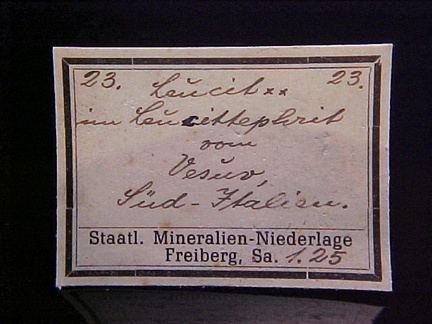 23. Leucit×× 23.
im Leucittephrit
vom
Vesuv,
Süd-Italien.
Staatl. Mineralien-Niederlage
Freiberg, Sa. 1.25